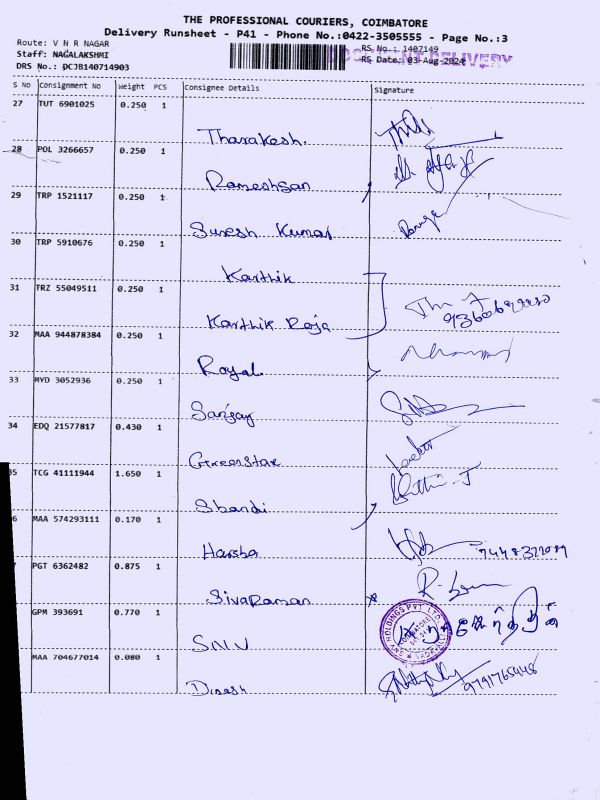 THE PROFESSIONAL COURIERS, COIMBATORE
Delivery Runsheet - P41 - Phone No.:0422-3505555 - Page No.:3
Route: V N R NAGAR
Staff: NAGALAKSHMI
DRS No.: DCJB140714903
RS No.: 1407149
RS Date: 03-Aug-2024
DELIVERY
S No Consignment No Weight PCS Consignee Details Signature
27 TUT 6901025 0.250 1
Tharakesh.
28 POL 3266657 0.250 1
Rameshsan
29 TRP 1521117 0.250 1
Suresh Kumar
30 TRP 5910676 0.250 1
Karthik
31 TRZ 55049511 0.250 1
Karthik Raja
32 MAA 944878384 0.250 1
Royal
33 MYD 3052936 0.250 1
Sanjay
34 EDQ 21577817 0.430 1
Greenstar
35 TCG 41111944 1.650 1
Shandi
6 MAA 574293111 0.170 1
Harsha
7 PGT 6362482 0.875 1
SivaRaman
GPM 393691 0.770 1
SNV
HOLDINGS PVT. LTD.
COIMBATORE
MAA 704677014 0.080 1
Dinesh
9791765448